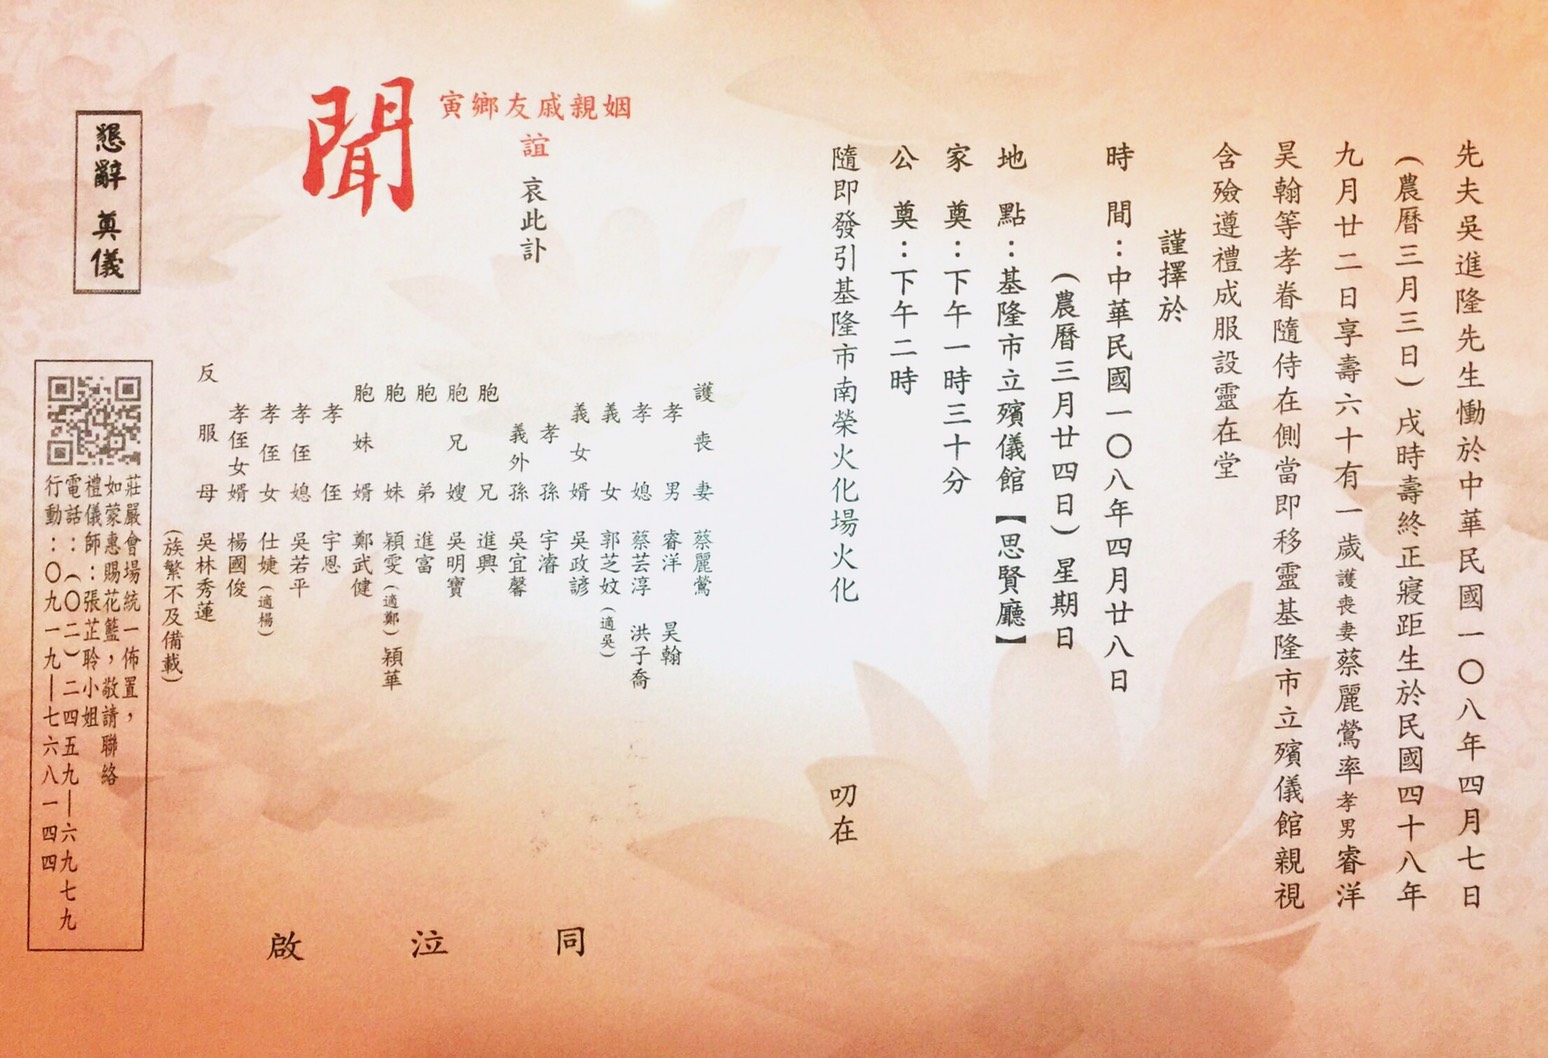 先夫吳進隆先生慟於中華民國一〇八年四月七日
(農曆三月三日)戌時壽終正寢距生於民國四十八年
九月廿二日享壽六十有一歲護喪妻蔡麗鶯率孝男睿洋
昊翰等孝眷隨侍在側當即移靈基隆市立殯儀館親視
含殮遵禮成服設靈在堂
謹擇於
時間:中華民國一〇八年四月廿八日
(農曆三月廿四日)星期日
地點:基隆市立殯儀館【思賢廳】
家奠:下午一時三十分
公奠:下午二時
隨即發引基隆市南榮火化場火化
叨在
姻親戚友鄉寅
誼
哀此訃
聞
護喪妻 蔡麗鶯
孝男 睿洋 昊翰
孝媳 蔡芸淳 洪子喬
義女 郭芝妏(適吳)
義女婿 吳政諺
孝孫 宇濬
義外孫 吳宜馨
胞兄 進興
胞兄嫂 吳明寶
胞弟 進富
胞妹 穎雯(適鄭)穎華
胞妹婿 鄭武健
孝侄 宇恩
孝侄媳 吳若平
孝侄女 仕婕(適楊)
孝侄女婿 楊國俊
反服母 吳林秀蓮
(族繁不及備載)
同泣啟
懇辭 奠儀
莊嚴會場統一佈置,
如蒙惠賜花籃,敬請聯絡
禮儀師:張芷聆小姐
電話:(〇二)二四五九—六九七九
行動:〇九一九—七六八一四四